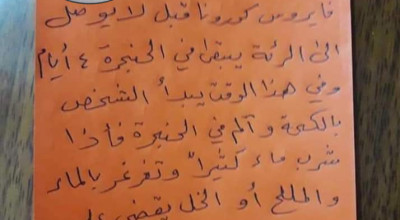 فايروس كورونا قبل لا يوصل
الى الرئة يبقى في الحنجرة ٤ أيام
وفي هذا الوقت يبدأ الشخص
بالكحة وآلم في الحنجرة فأذا
شرب ماء كثيراً وتغرغر بالماء
والملح أو الخل يقضي